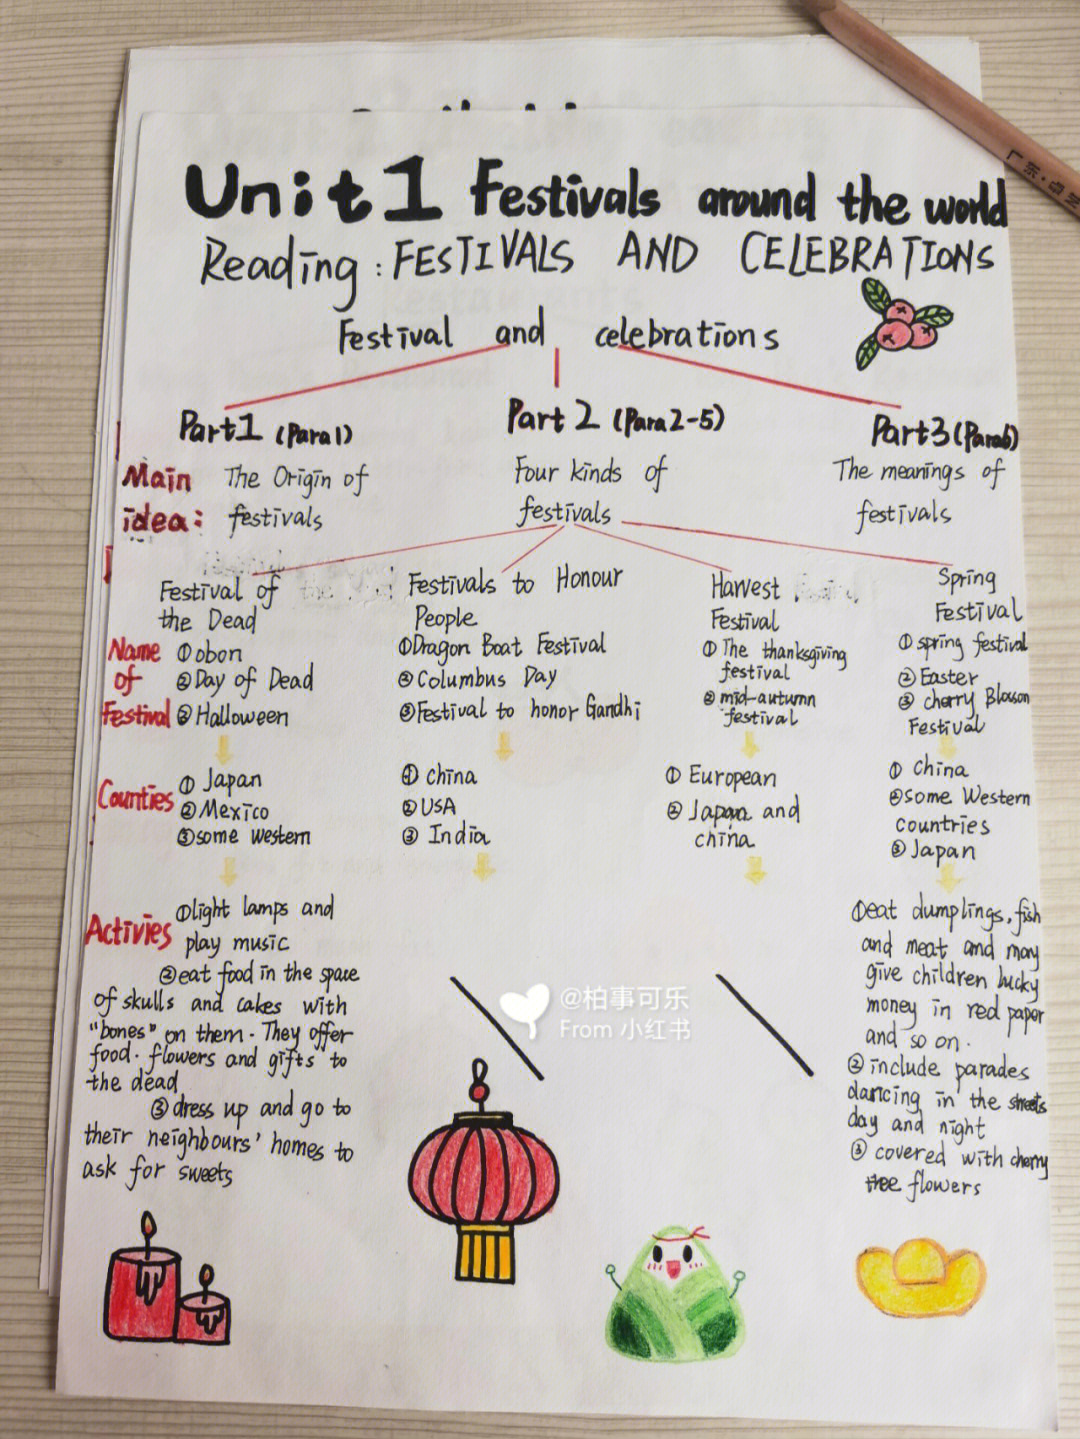 Unit1 Festivals around the world
Reading: FESTIVALS AND CELEBRATIONS
Festival and celebrations
Part1 (Para1)
Part 2 (Para2-5)
Part3 (Para6)
Main idea:
The Origin of
festivals
Four kinds of
festivals
The meanings of
festivals
Festival of
the Dead
Festivals to Honour
People
Harvest
Festival
Spring
Festival
Name
of
Festival
①obon
②Day of Dead
③Halloween
①Dragon Boat Festival
②Columbus Day
③Festival to honor Gandhi
① The thanksgiving
festival
② mid-autumn
festival
① spring festival
② Easter
③ cherry Blosson
Festival
Counties
① Japan
②Mexico
③some western
① china
② USA
③ India
① European
② Japan and
china
① china
②some Western
countries
③ Japan
Activies
①light lamps and
play music
②eat food in the space
of skulls and cakes with
"bones" on them. They offer
food. flowers and gifts to
the dead
③dress up and go to
their neighbours' homes to
ask for sweets
①eat dumplings, fish
and meat and may
give children lucky
money in red paper
and so on.
② include parades
dancing in the streets
day and night
③ covered with cherry
tree flowers
@柏事可乐
From 小红书
广东·